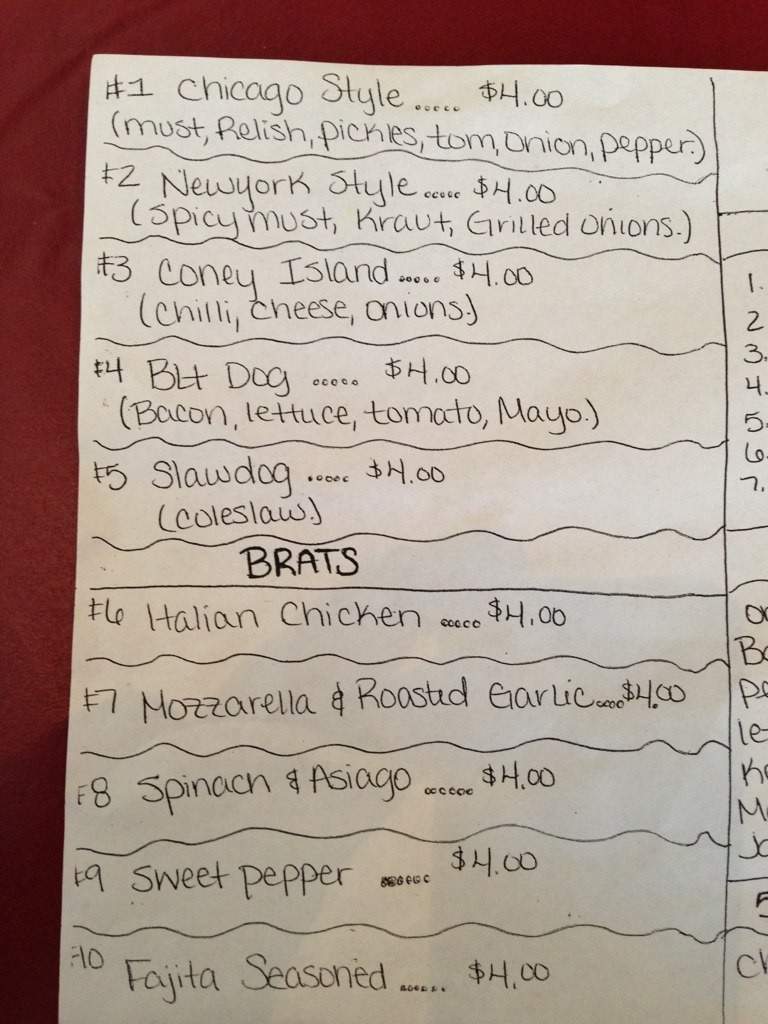 #1 Chicago Style ..... $4.00
(must, Relish, pickles, tom, onion, pepper.)
#2 Newyork Style ..... $4.00
(Spicy must, Kraut, Grilled onions.)
#3 Coney Island ..... $4.00
(Chilli, cheese, onions.)
#4 Blt Dog ..... $4.00
(Bacon, lettuce, tomato, Mayo.)
#5 Slawdog ..... $4.00
(coleslaw.)
BRATS
#6 Italian Chicken ..... $4.00
#7 Mozzarella & Roasted Garlic.....$4.00
#8 Spinach & Asiago ...... $4.00
#9 Sweet pepper ....... $4.00
#10 Fajita Seasoned ...... $4.00
1.
2
3.
4.
5.
6.
7.